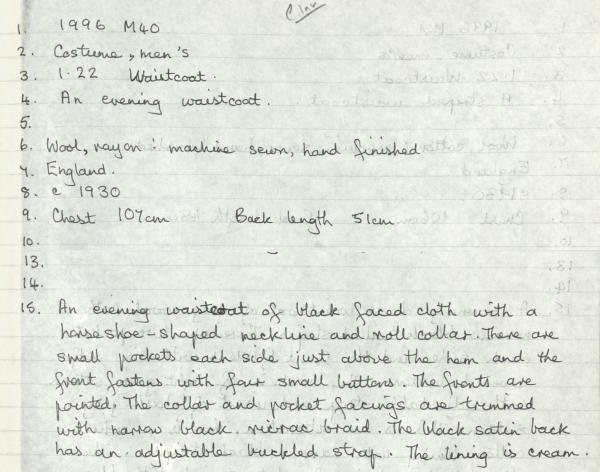 C Inv
1. 1996 M40
2. Costume, men's
3. 1.22 Waistcoat.
4. An evening waistcoat.
5.
6. Wool, rayon : machine sewn, hand finished
7. England.
8. c 1930
9. Chest 107cm Back length 51cm
10.
13.
14.
15. An evening waistcoat of black faced cloth with a
horseshoe-shaped neckline and roll collar. There are
small pockets each side just above the hem and the
front fastens with four small buttons. The fronts are
pointed. The collar and pocket facings are trimmed
with narrow black ricrac braid. The black satin back
has an adjustable buckled strap. The lining is cream.